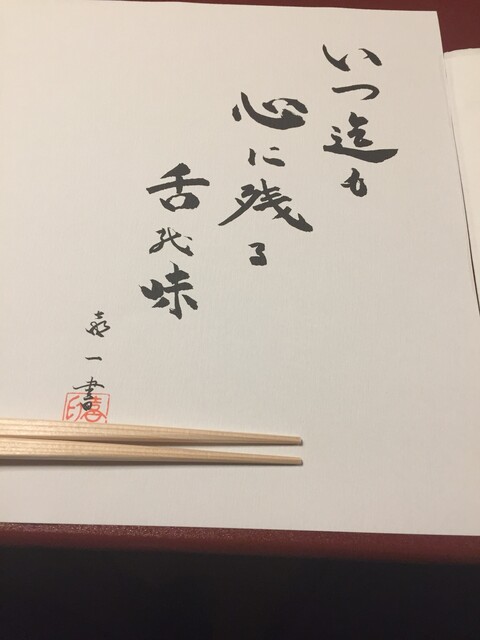 いつ迄も
心に残る
舌の味
喜一書